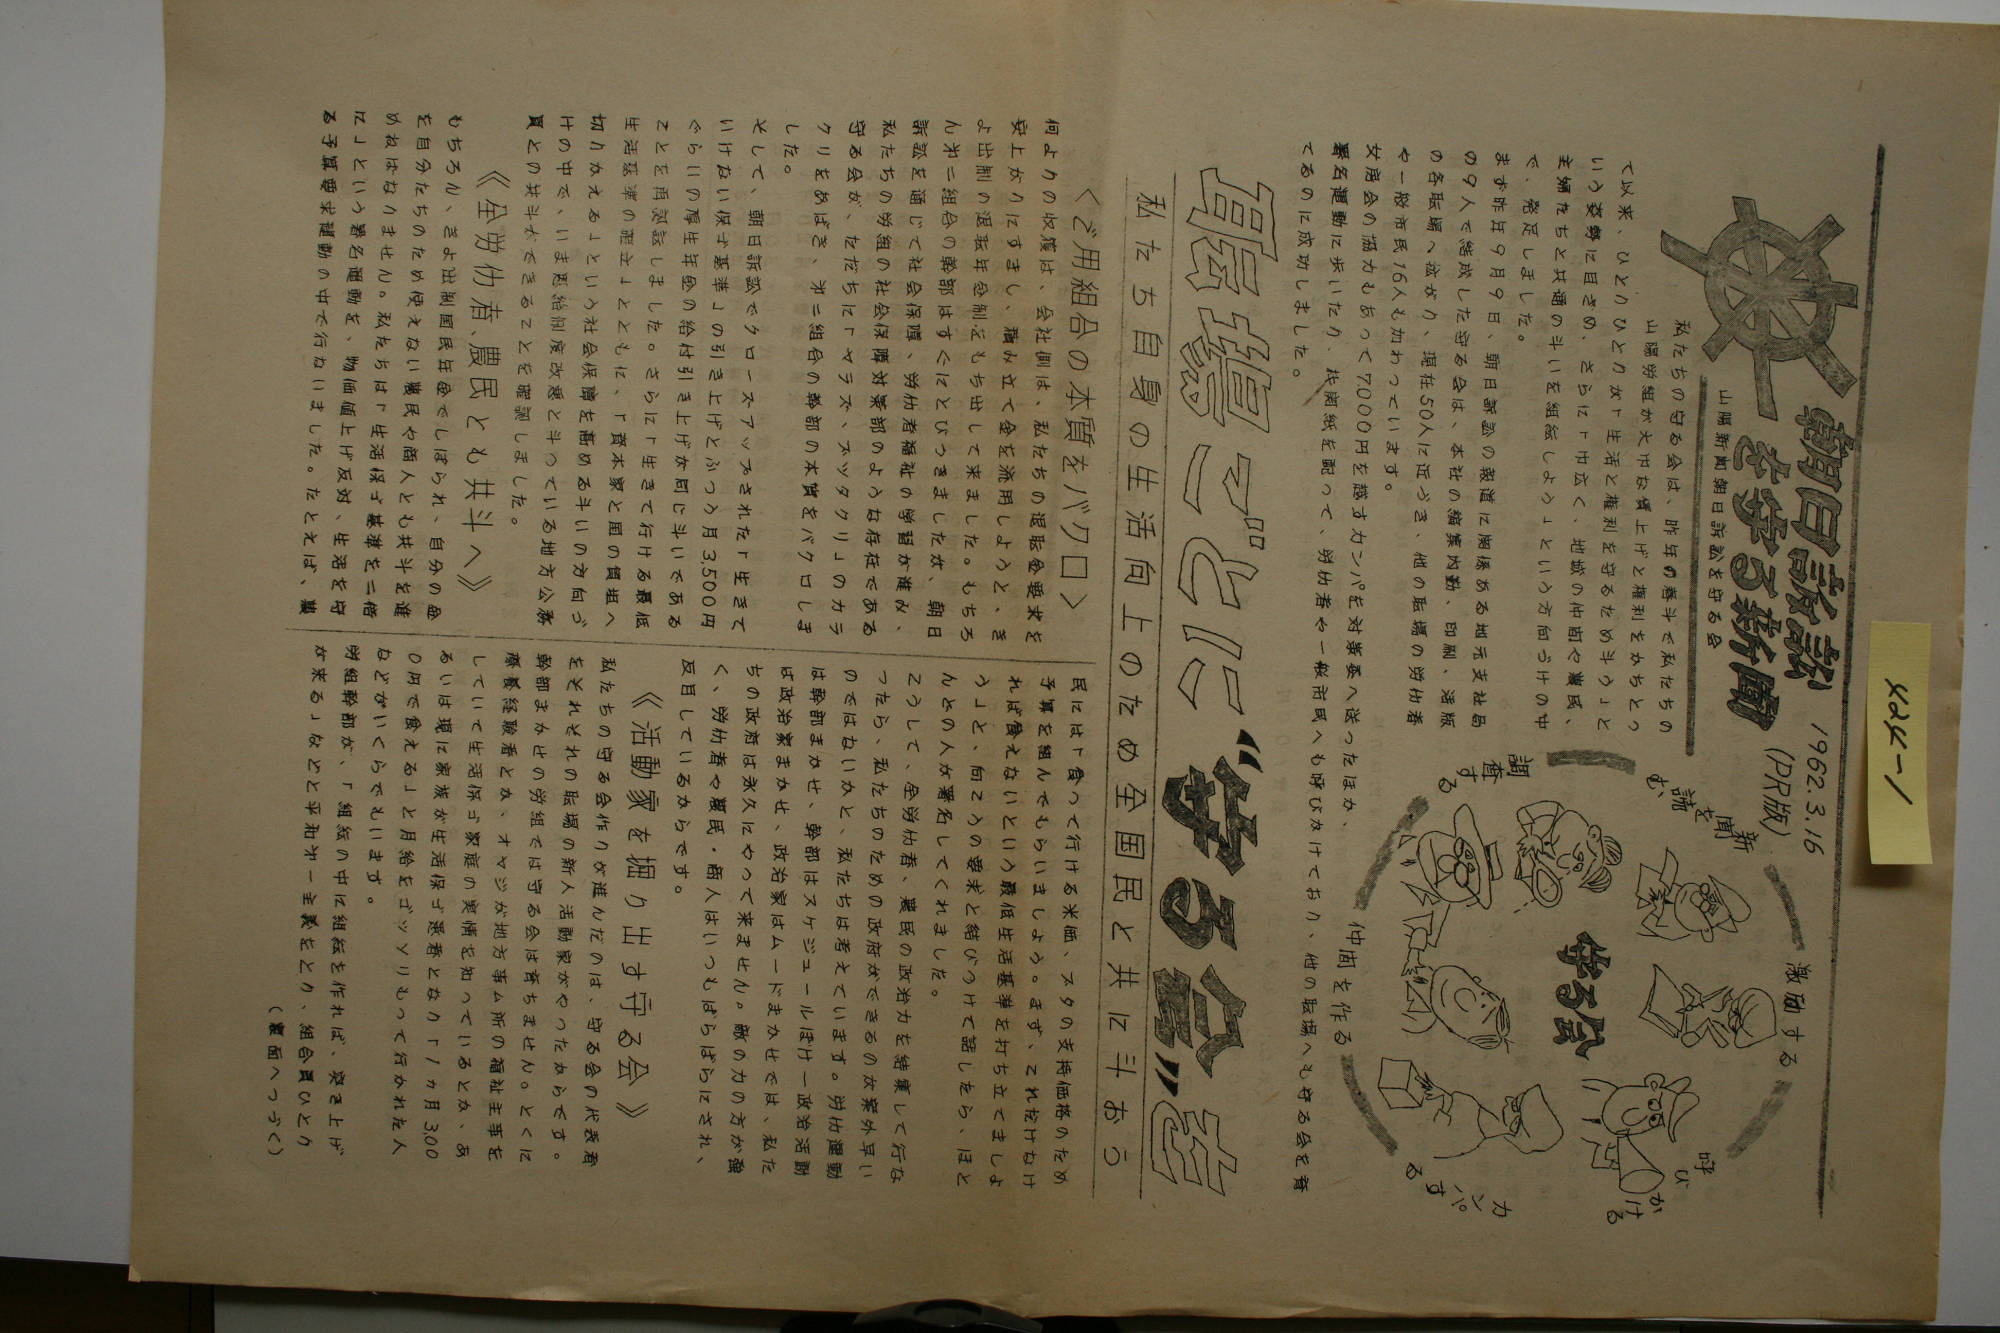 424-1
朝日訴訟
を守る新聞
1962.3.16
(PR版)
山陽新聞朝日訴訟を守る会
私たちの守る会は、昨年の春斗で私たちの
山陽労組が大巾な賃上げと権利をかちとっ
て以来、ひとりひとりが「生活と権利を守るため斗う」と
いう姿勢に目ざめ、さらに「巾広く、地域の仲間や農民、
主婦たちと共通の斗いを組織しよう」という方向づけの中
で、発足しました。
まず昨年9月9日、朝日訴訟の報道に関係ある地元支社局
の9人で結成した守る会は、本社の編集内勤、印刷、活版
の各職場へ拡がり、現在50人に近づき、他の職場の労仂者
や一般市民16人も加わっています。
女房会の協力もあって7,000円を越すカンパを対策委へ送ったほか、
署名運動に歩いたり、機関紙を配って、労仂者や一般市民へも呼びかけており、他の職場へも守る会を育
てるのに成功しました。
守る会
新聞を読む
激励する
呼びかける
カンパする
仲間を作る
調査する
職場ごとに"守る会"を
私たち自身の生活向上のため全国民と共に斗おう
〈ご用組合の本質をバクロ〉
何よりの収穫は、会社側は、私たちの退職金要求を
安上がりにすまし、積み立て金を流用しようと、き
よ出制の退職年金制をもち出して来ました。もちろ
ん第二組合の幹部はすぐにとびつきましたが、朝日
訴訟を通じて社会保障、労仂者福祉の学習が進み、
私たちの労組の社会保障対策部のような存在である
守る会が、ただちに「ヤラズ、ブッタクリ」のカラ
クリをあばき、第二組合の幹部の本質をバクロしま
した。
そして、朝日訴訟でクローズアップされた「生きて
いけない保ゴ基準」の引き上げとふつう月3,500円
ぐらいの厚生年金の給付引き上げが同じ斗いである
ことを再認識しました。さらに「生きて行ける最低
生活基準の確立」とともに、「資本家と国の負担へ
切りかえる」という社会保障を高める斗いの方向づ
けの中で、いま恩給制度改悪と斗っている地方公務
員との共斗ができることを確認しました。
《全労仂者、農民とも共斗へ》
もちろん、きよ出制国民年金でしばられ、自分の金
を自分たちのため使えない農民や商人とも共斗を進
めねばなりません。私たちは「生活保ゴ基準を二倍
に」という署名運動を、物価値上げ反対、生活を守
る予算要求運動の中で行ないました。たとえば、農
民には「食って行ける米価、ブタの支持価格のため
予算を組んでもらいましょう。まず、これだけなけ
れば食えないという最低生活基準を打ち立てましょ
う」と、向こうの要求と結びつけて話したら、ほと
んどの人が署名してくれました。
こうして、全労仂者、農民の政治力を結集して行な
ったら、私たちのための政府ができるのが案外早い
のではないかと、私たちは考えています。労仂運動
は幹部まかせ、幹部はスケジュールぼけ一政治活動
は政治家まかせ、政治家はムードまかせでは、私た
ちの政府は永久にやって来ません。敵の力の方が強
く、労仂者や農民・商人はいつもばらばらにされ、
反目しているからです。
《活動家を掘り出す守る会》
私たちの守る会作りが進んだのは、守る会の代表者
をそれぞれの職場の新人活動家がやったからです。
幹部まかせの労組では守る会は育ちません。とくに
療養経験者とか、オヤジが地方事ム所の福祉主事を
していて生活保ゴ家庭の実情を知っているとか、あ
るいは現に家族が生活保ゴ患者となり「1ヵ月3,00
0円で食える」と月給をゴッソリもって行かれた人
などがいくらでもいます。
労組幹部が、「組織の中に組織を作れば、突き上げ
が来る」などと平和第一主義をとり、組合員ひとり
(裏面へつづく)